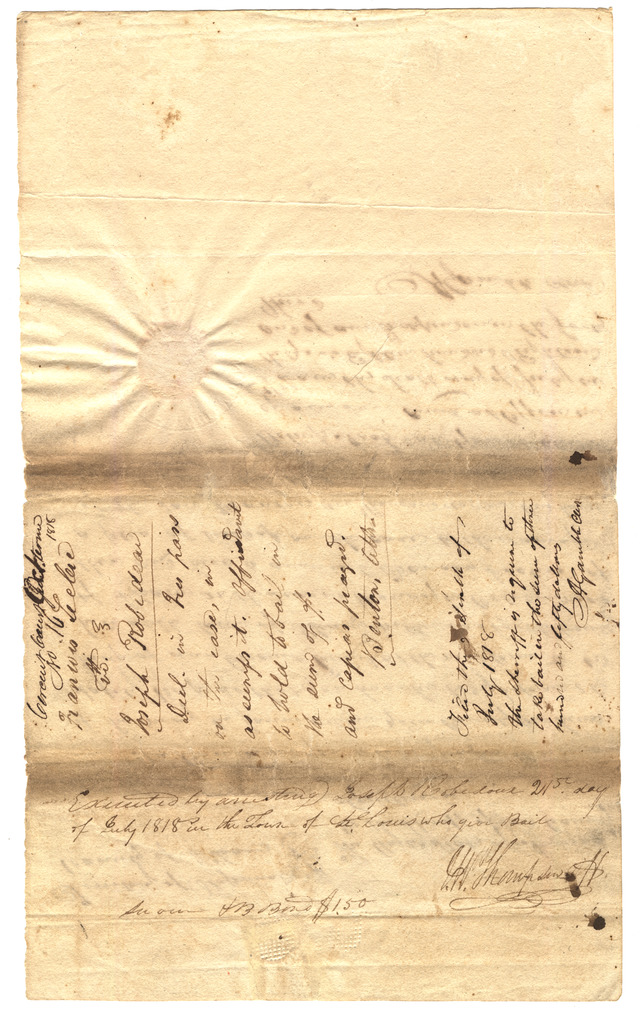 Circuit Court Oct Term 1818
No. 16
Francois Leclair
vs.
Joseph Robideau
Decl. in Tres pass
on the case, in
assumpsit. Affidavit
to hold to bail, in
the sum of $
and Capias prayed.
Bentons Atto.
Filed the tenth of
July 1818
the Sheriff is required to
take bail in the sum of three
hundred and fifty dollars
Gamble Clk
Executed by arresting Joseph Robedoux 21st day
of July 1818 in the Town of St Louis who give Bail
J W Thompson Sh
Bond $1.50